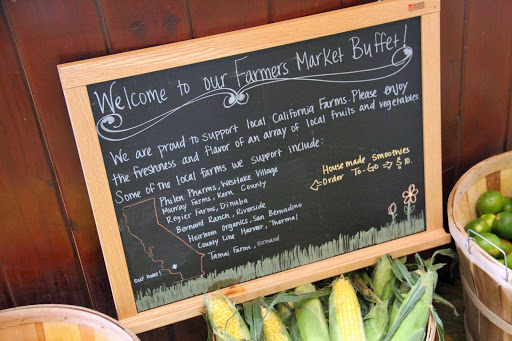 Welcome to our Farmers Market Buffet!
We are proud to support local California Farms. Please enjoy
the freshness and flavor of an array of local fruits and vegetables
Some of the local farms we support include:
Philen Pharms, Westlake Village
Murray Farms, Kern County
Regier Farms, Dinuba
Bernard Ranch, Riverside
Heirloom Organics, San Bernadino
County Line Harvest, Thermal
Tamai Farms, Oxnard
House made smoothies
Order To-Go
10.
our hotel!